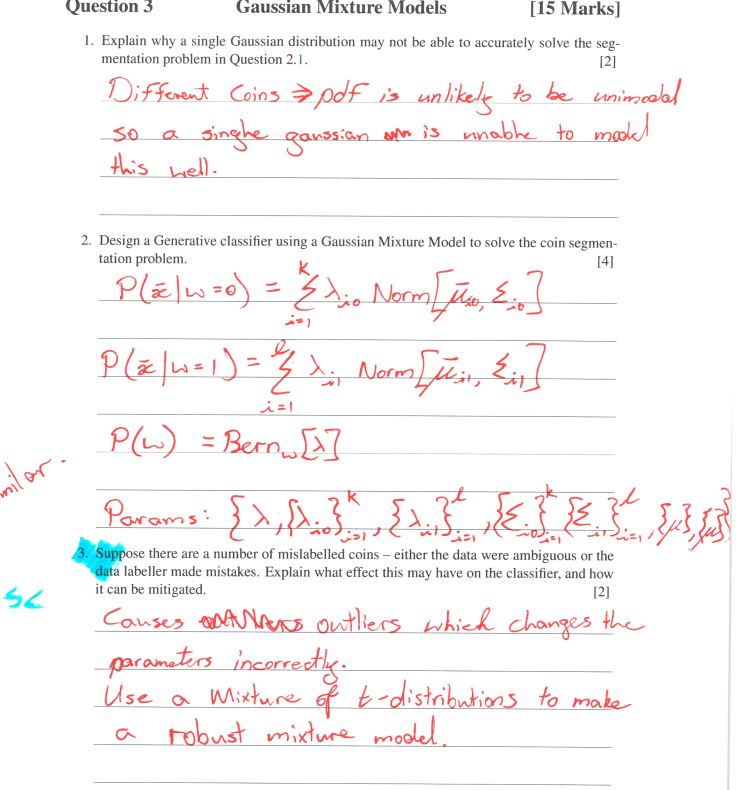 Question 3 Gaussian Mixture Models [15 Marks]
1. Explain why a single Gaussian distribution may not be able to accurately solve the seg-
mentation problem in Question 2.1. [2]
Different Coins ⇒ pdf is unlikely to be unimodal
so a single gaussian is unable to model
this well.
2. Design a Generative classifier using a Gaussian Mixture Model to solve the coin segmen-
tation problem. [4]
P(x̄|w=0) = Σ_{i=1}^{k} λ_{i0} Norm[μ̄_{i0}, Σ_{i0}]
P(x̄|w=1) = Σ_{i=1}^{l} λ_{i1} Norm[μ̄_{i1}, Σ_{i1}]
P(w) = Bern_w[λ]
milar.
Params: {λ, {λ_{i0}}_{i=1}^{k}, {λ_{i1}}_{i=1}^{l}, {Σ_{i0}}_{i=1}^{k} {Σ_{i1}}_{i=1}^{l}, {μ}, {μ}
3. Suppose there are a number of mislabelled coins – either the data were ambiguous or the
data labeller made mistakes. Explain what effect this may have on the classifier, and how
it can be mitigated. [2]
Causes outliers which changes the
parameters incorrectly.
Use a Mixture of t-distributions to make
a robust mixture model.